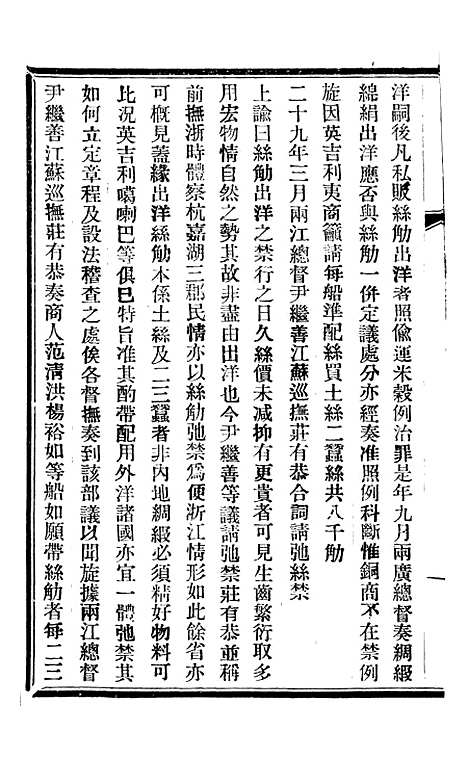 洋嗣後凡私販絲觔出洋者照偸運米穀例治罪是年九月兩廣總督奏綢緞
綿絹出洋應否與絲觔一併定議處分亦經奏准照例科斷惟銅商不在禁例
旋因英吉利夷商籲請每船準配絲買土絲二蠶絲共八千觔
二十九年三月兩江總督尹繼善江蘇巡撫莊有恭合詞請弛絲禁
上諭曰絲觔出洋之禁行之日久絲價未減抑有更貴者可見生齒繁衍取多
用宏物情自然之勢其故非盡由出洋也今尹繼善等議請弛禁莊有恭並稱
前撫浙時體察杭嘉湖三郡民情亦以絲觔弛禁爲便浙江情形如此餘省亦
可概見蓋緣出洋絲觔本係土絲及二三蠶者非內地綢緞必須精好物料可
比況英吉利噶喇巴等俱已特旨准其酌帶配用外洋諸國亦宜一體弛禁其
如何立定章程及設法稽查之處俟各督撫奏到該部議以聞旋據兩江總督
尹繼善江蘇巡撫莊有恭奏商人范清洪楊裕如等船如願帶絲觔者每二三